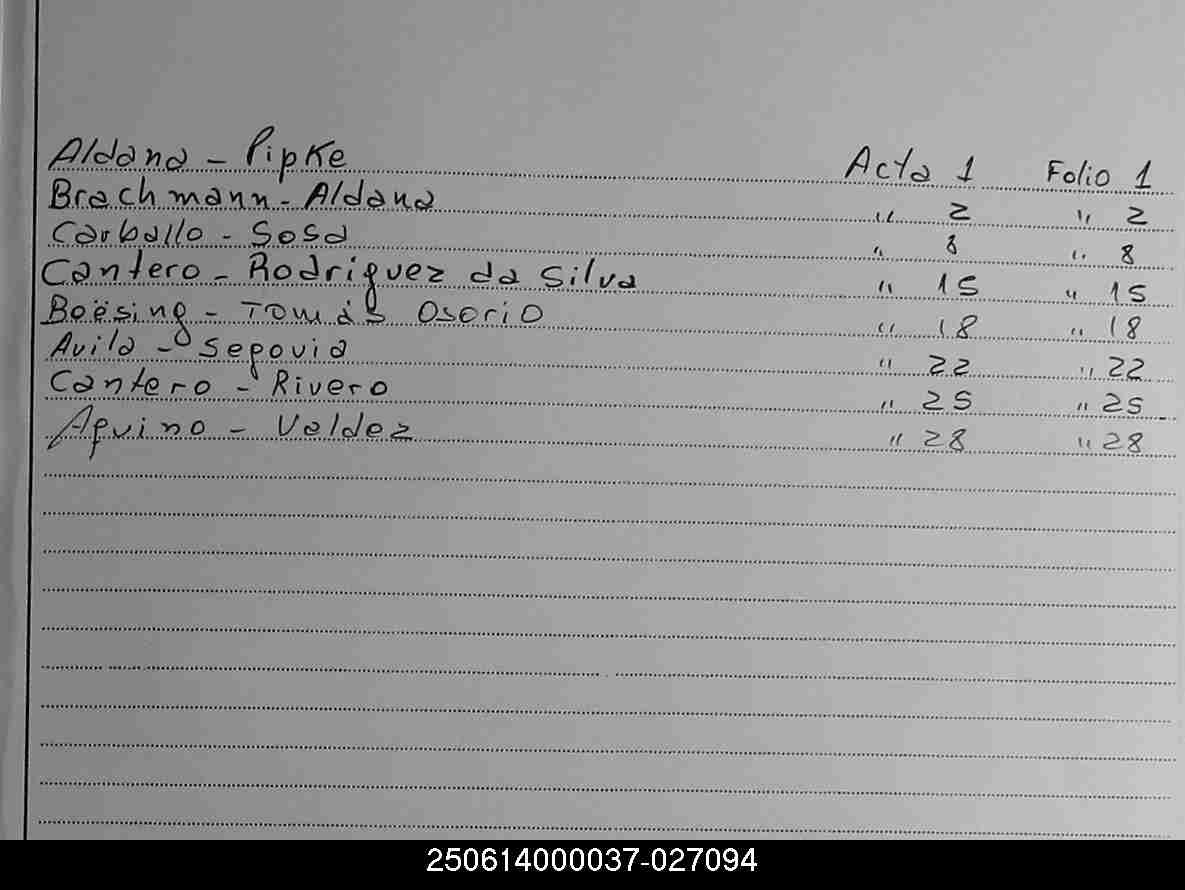 Aldana - Pipke Acta 1 Folio 1
Brachmann - Aldana " 2 " 2
Carballo - Sosa " 8 " 8
Cantero - Rodriguez da Silva " 15 " 15
Boësing - Tomás Osorio " 18 " 18
Avila - Segovia " 22 " 22
Cantero - Rivero " 25 " 25
Aquino - Valdez " 28 " 28
250614000037-027094